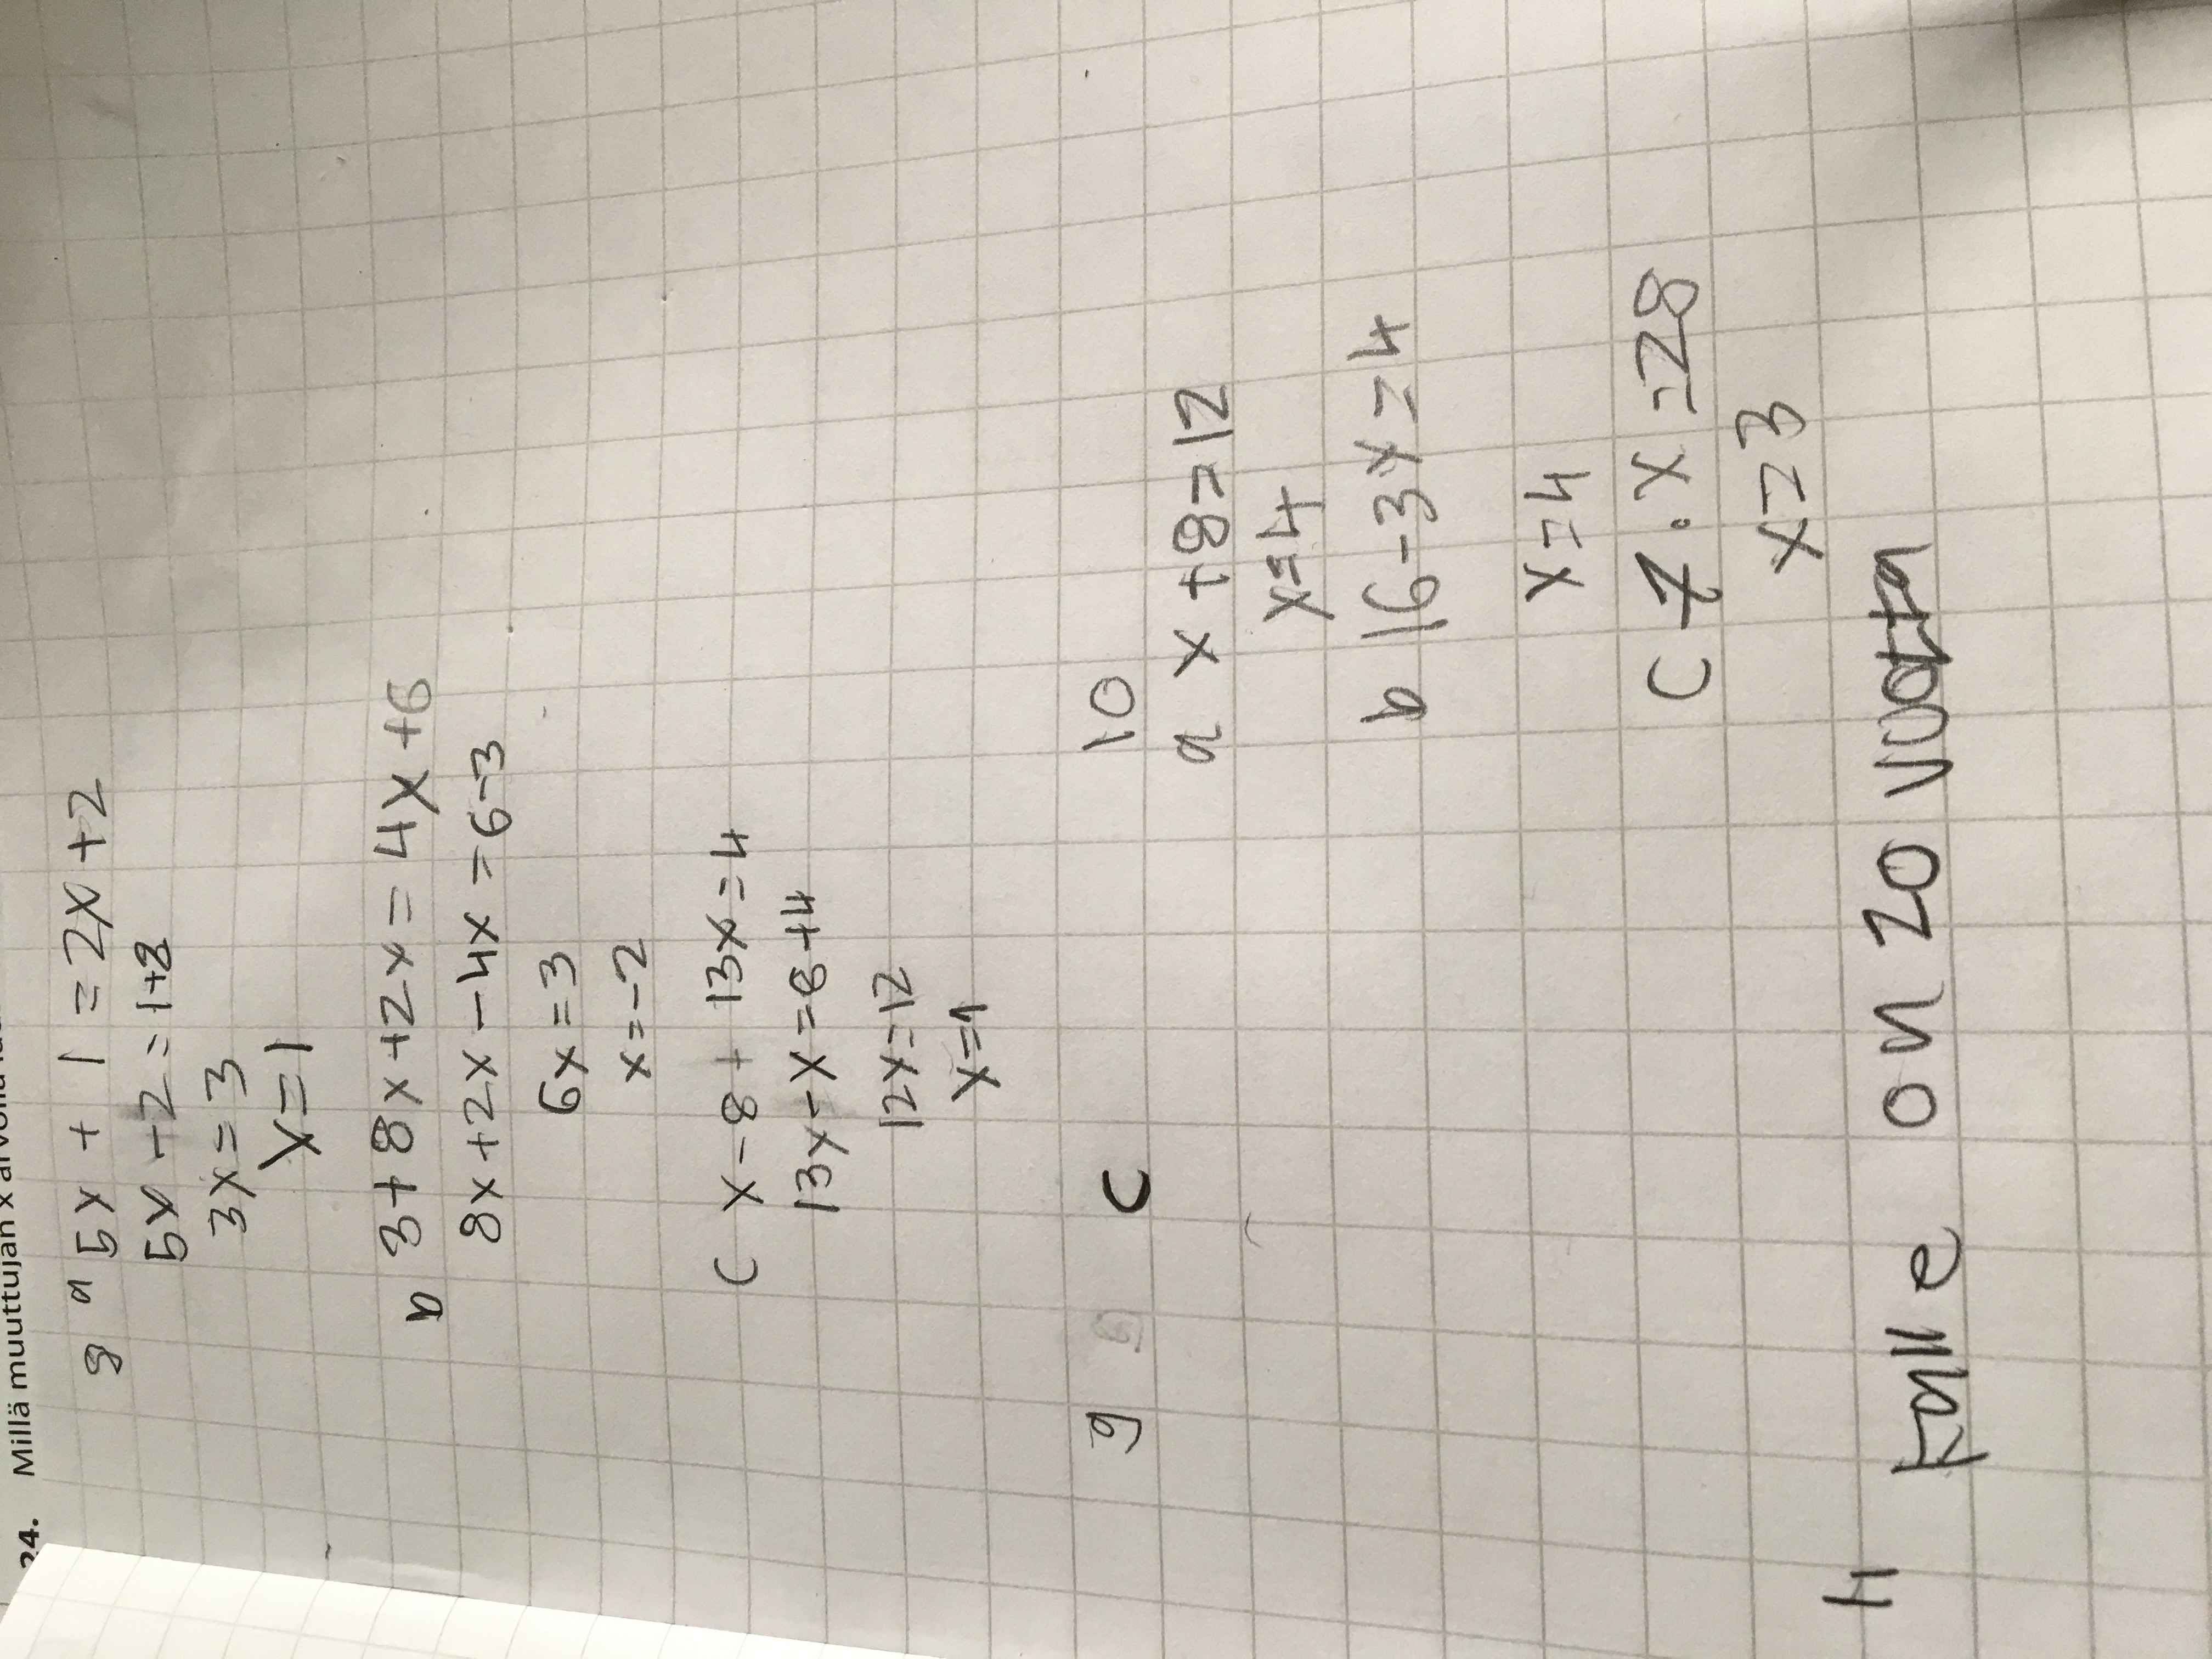 24. Millä muuttujan x arvolla
8 a 5x + 1 = 2x + 2
5x - 2 = 1+2
3x = 3
x = 1
b 3 + 8x + 2x = 4x + 6
8x + 2x - 4x = 6 - 3
6x = 3
x = -2
C x - 8 + 13x = 4
13x - x = 8 + 4
12x = 12
x = 1
9 C
10
a x + 8 = 12
x = 4
b 16 - 3x = 4
x = 4
C 7 · x = 28
x = 3
11
Kalle on 20 vuotta